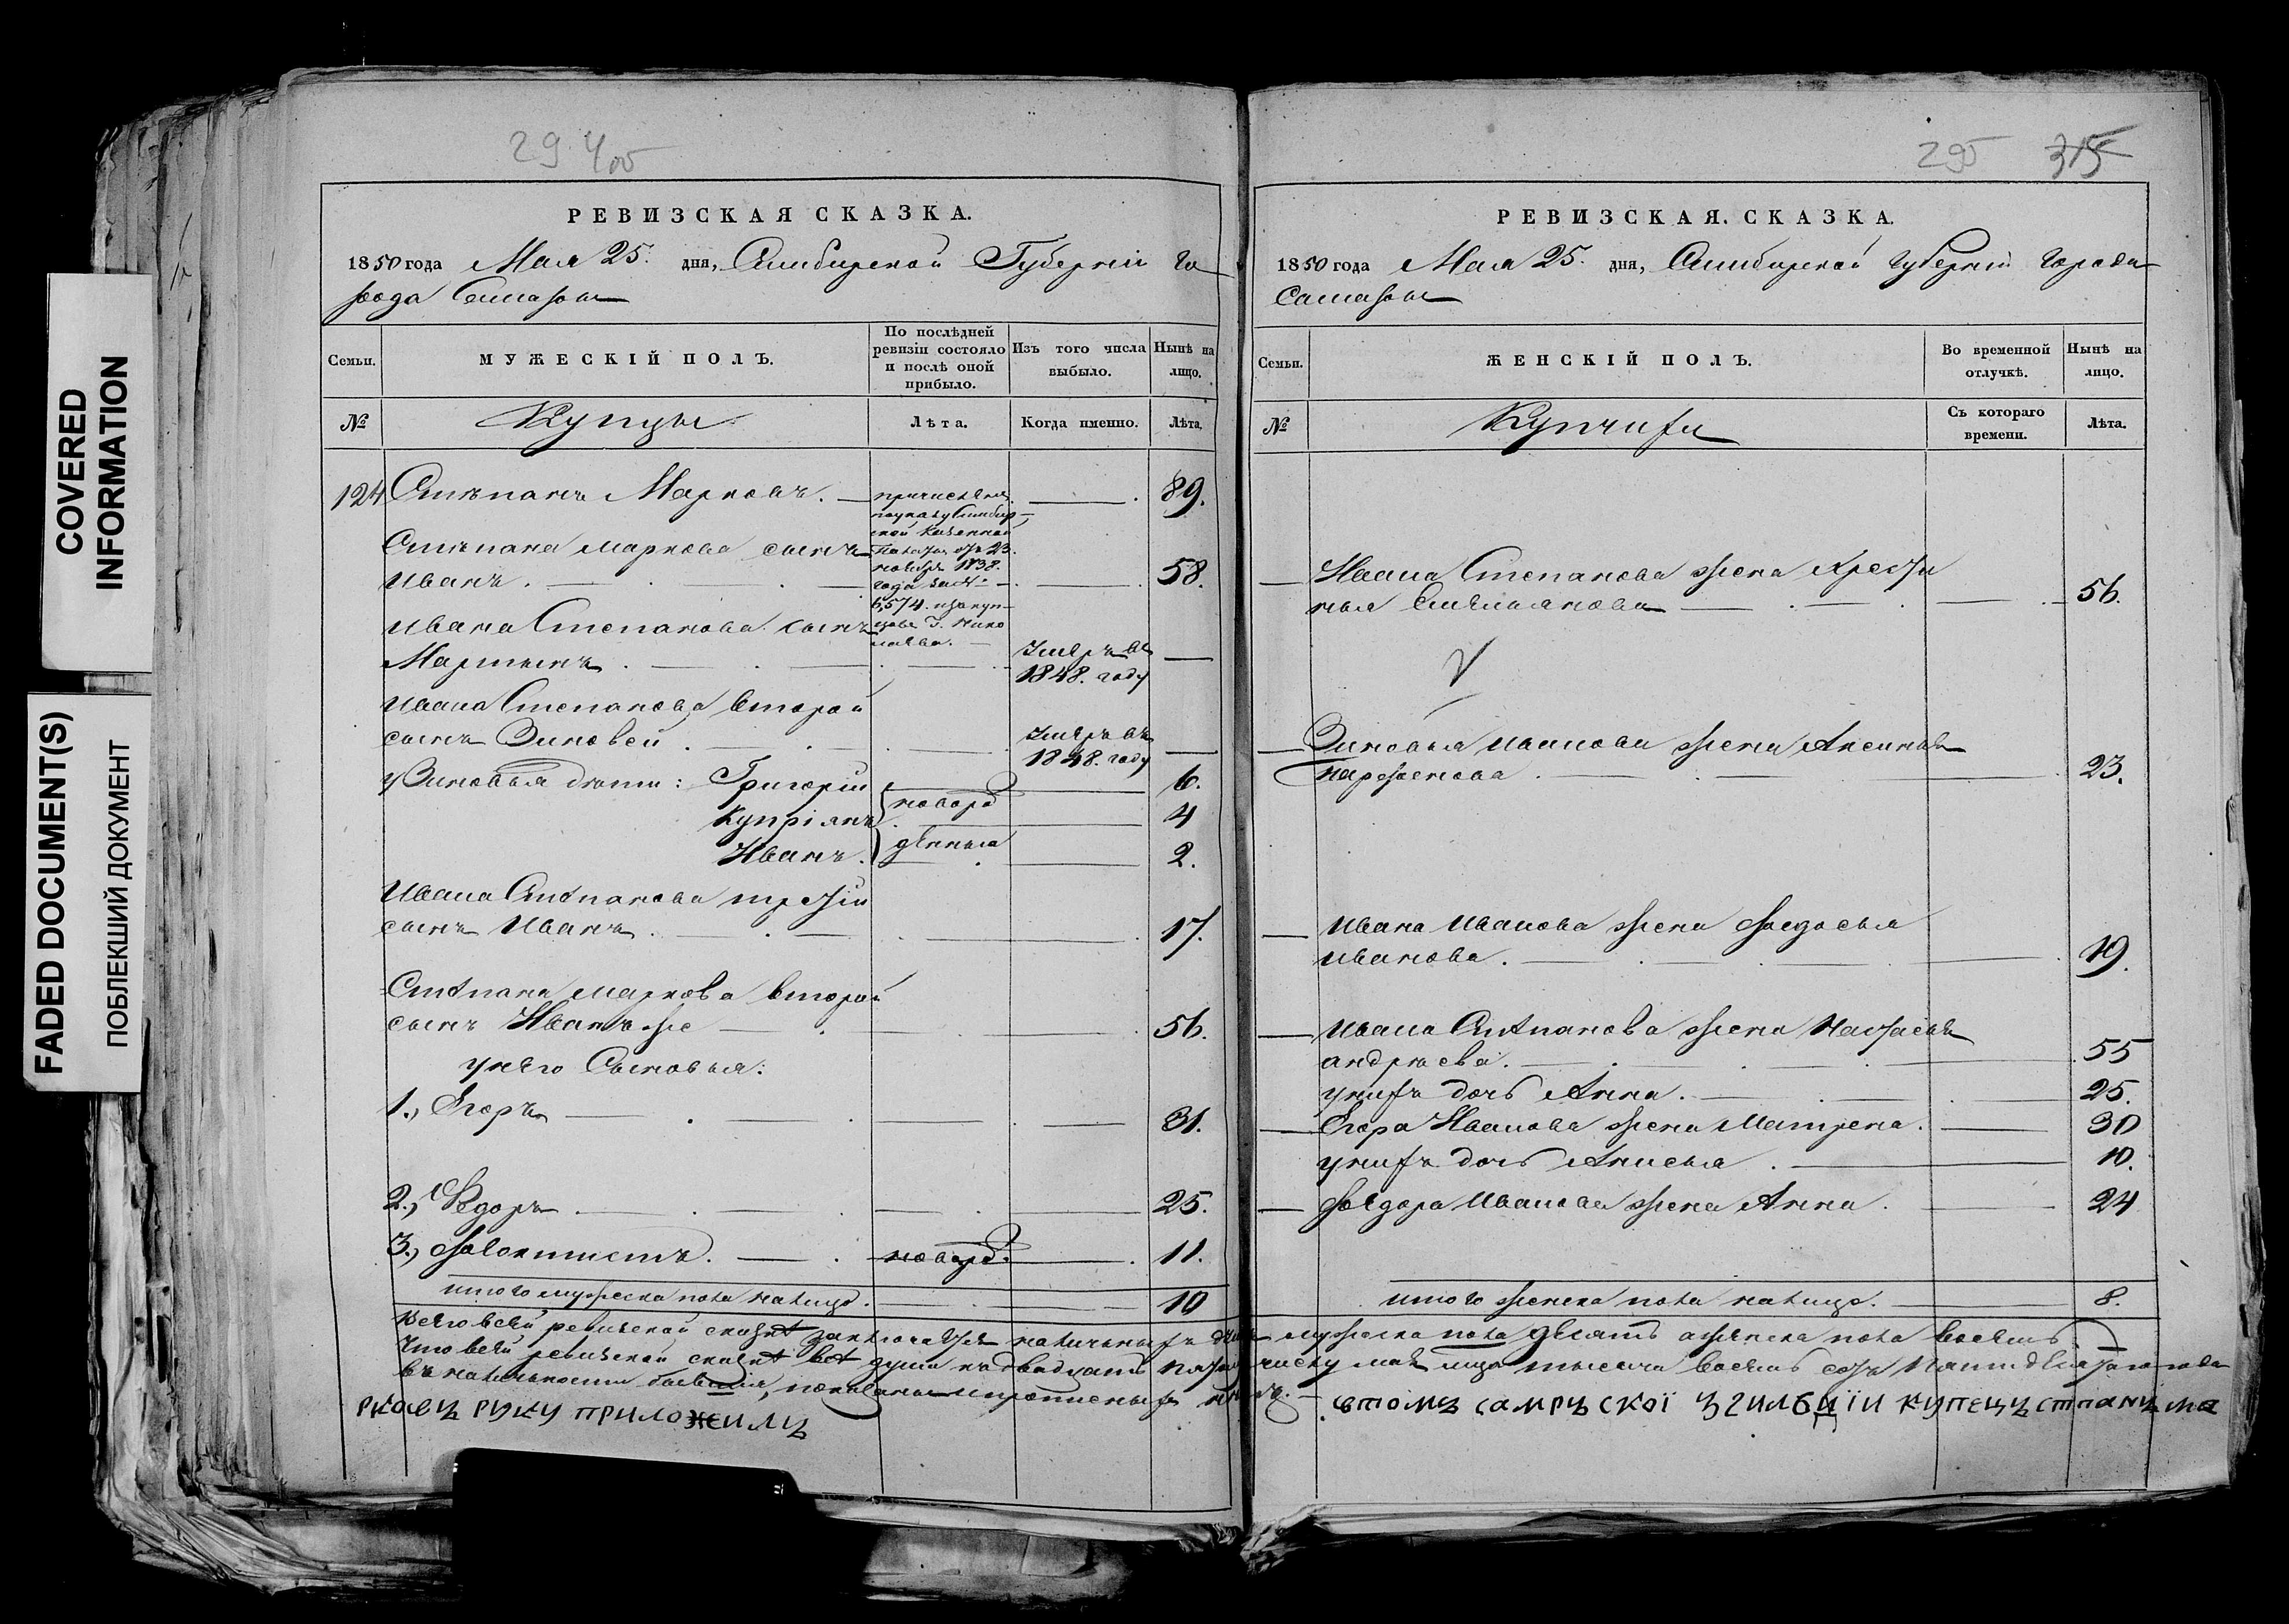 COVERED
INFORMATION
FADED DOCUMENT(S)
ПОБЛЕКШИЙ ДОКУМЕНТ
294 об
РЕВИЗСКАЯ СКАЗКА.
1850 года Мая 25. дня, Симбирской Губерніи Го
рода Самары
Семьи.
МУЖЕСКІЙ ПОЛЪ.
По послѣдней
ревизіи состояло
и послѣ оной
прибыло.
Изъ того числа
выбыло.
Нынѣ на
лицо.
№
Купцы
Лѣта.
Когда именно.
Лѣта.
124 Степанъ Марковъ. 89.
причислены
по указу Симбир-
ской Казенной
Палаты отъ 23.
ноября 1838.
года за №
6,574. изъ куп-
цовъ Г. Нико
лаева.
Степана Маркова сынъ
Иванъ. 58.
Ивана Степанова сынъ
Мартынъ. Умеръ въ
1848. году
Ивана Степанова второй
сынъ Зиновей. Умеръ въ
1848. году
у Зиновья дѣти: Григорій 6.
Купріянъ 4
Иванъ. 2.
новоро
жденныя
Ивана Степанова третій
сынъ Иванъ. 17.
Степана Маркова второй
сынъ Иванъ же 56.
у него Сыновья:
1., Егоръ 31.
2., Ѳедоръ 25.
3., Феоктистъ. новорд. 11.
итого мужеска пола налицо. 10
295 315
РЕВИЗСКАЯ. СКАЗКА.
1850 года Мая 25. дня, Симбирской Губерніи Города
Самары
Семьи.
ЖЕНСКІЙ ПОЛЪ.
Во временной
отлучкѣ.
Нынѣ на
лицо.
№
Купчихи
Съ котораго
времени.
Лѣта.
Ивана Степанова жена Хрести
нья Емельянова 56.
Зиновья Иванова жена Аксинья
Парфенова. 23.
Ивана Иванова жена Федосья
Иванова. 19.
Ивана Степанова жена Настасья
Андреева. 55
у нихъ дочь Анна. 25.
Егора Иванова жена Матрена. 30
у нихъ дочь Анисья. 10.
Федора Иванова жена Анна. 24
итого женска пола налицо. 8.
Всего в сей ревизской сказкѣ заключается наличныхъ душъ мужеска пола десять а женска пола восемь
Что в сей ревизской сказкѣ всѣ души къ двадцать пятому числу мая мѣсяца тысяча восемь сотъ пятидесятаго года
въ наличности бывшія, показаны и пропущеныхъ нѣтъ.
втомъ самръскоі ꙁ гильдіи купецъ стпанъ ма
ркавъ руку приложилъ